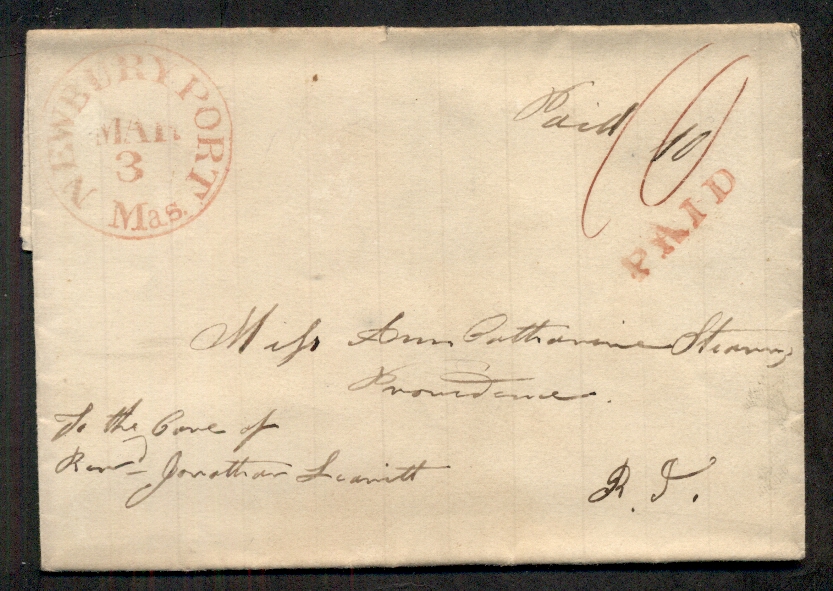 NEWBURYPORT
MAR
3
Mas.
Paid 10
PAID
Miss Ann Catharine Stearns
Providence.
To the Care of
Revd Jonathan Leavitt
R. I.